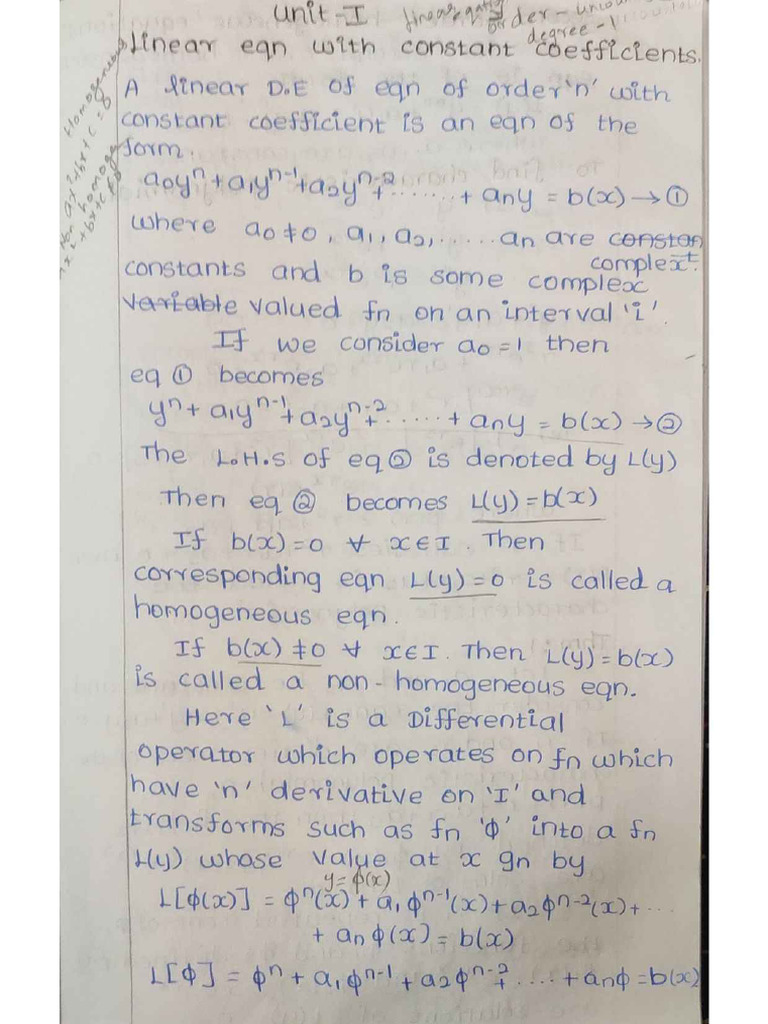 Unit-I
order -
degree - 1
Linear eqn with constant coefficients.
Homogeneous
ax²+bx+c=0
A linear D.E of eqn of order 'n' with
constant coefficient is an eqn of the
form.
a₀yⁿ+a₁yⁿ⁻¹+a₂yⁿ⁻²+.......+ aₙy = b(x) → ①
where a₀≠0, a₁, a₂,...... aₙ are constan
complext.
constants and b is some complex
variable valued fn on an interval 'i'.
If we consider a₀=1 then
eq ① becomes
yⁿ+ a₁yⁿ⁻¹+a₂yⁿ⁻²+......+ aₙy = b(x) → ②
The L.H.S of eq ② is denoted by L(y)
Then eq ② becomes L(y)=b(x)
If b(x)=0 ∀ x∈I. Then
corresponding eqn L(y)=0 is called a
homogeneous eqn.
If b(x)≠0 ∀ x∈I. Then L(y)=b(x)
is called a non-homogeneous eqn.
Here 'L' is a Differential
operator which operates on fn which
have 'n' derivative on 'I' and
transforms such as fn 'Φ' into a fn
L(y) whose value at x gn by
y=Φ(x)
L[Φ(x)] = Φⁿ(x)+a₁Φⁿ⁻¹(x)+a₂Φⁿ⁻²(x)+...
+ aₙΦ(x)=b(x)
L[Φ] = Φⁿ+a₁Φⁿ⁻¹+a₂Φⁿ⁻²+.....+aₙΦ=b(x)